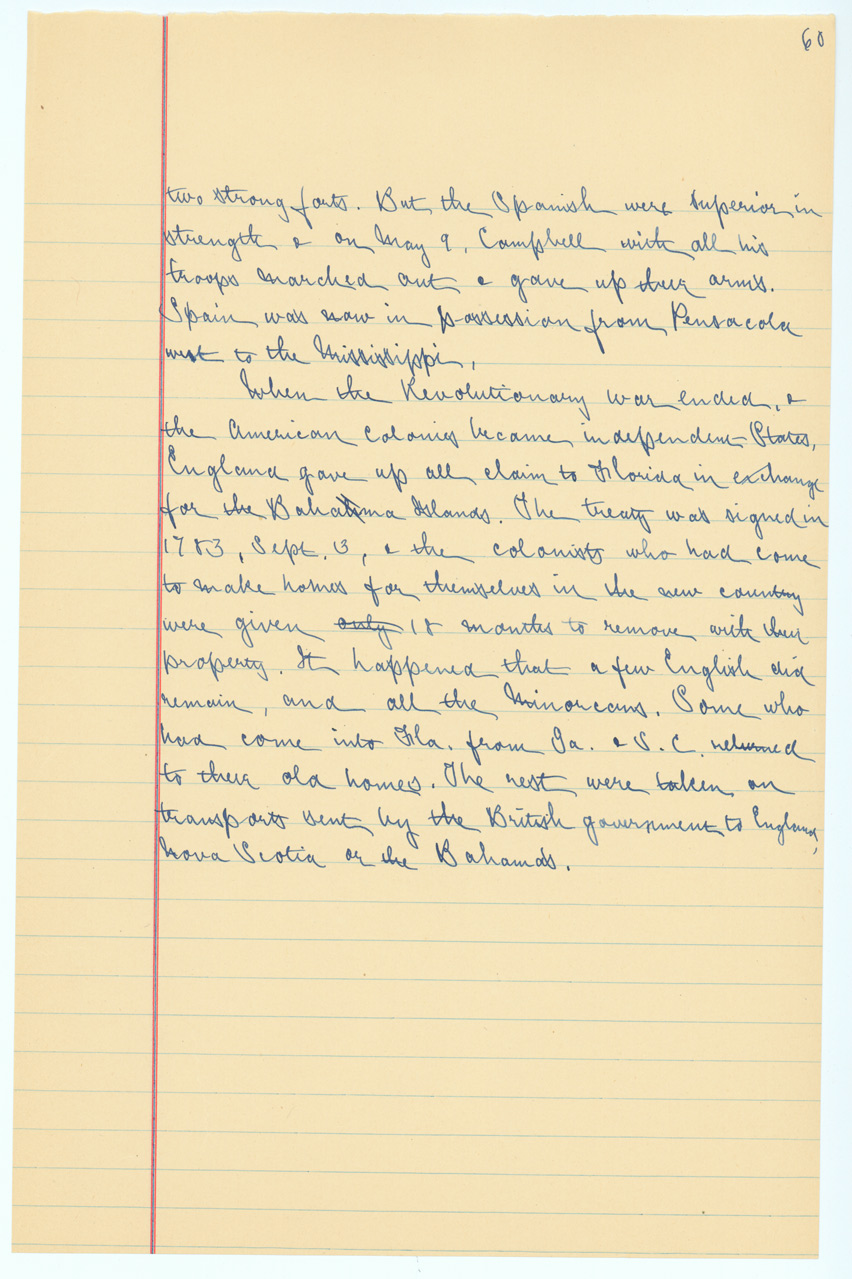 60
two strong forts. But the Spanish were superior in
strength & on May 9, Campbell with all his
troops marched out & gave up their arms.
Spain was now in possession from Pensacola
west to the Mississippi,
When the Revolutionary war ended, &
the American colonies became independent States,
England gave up all claim to Florida in exchange
for the Bahama Islands. The treaty was signed in
1783, Sept. 3, & the colonists who had come
to make homes for themselves in the new country
were given only 18 months to remove with their
property. It happened that a few English did
remain, and all the Minorcans. Some who
had come into Fla. from Ga. & S.C. returned
to their old homes. The rest were taken on
transports sent by the British government to England,
Nova Scotia or the Bahamas.